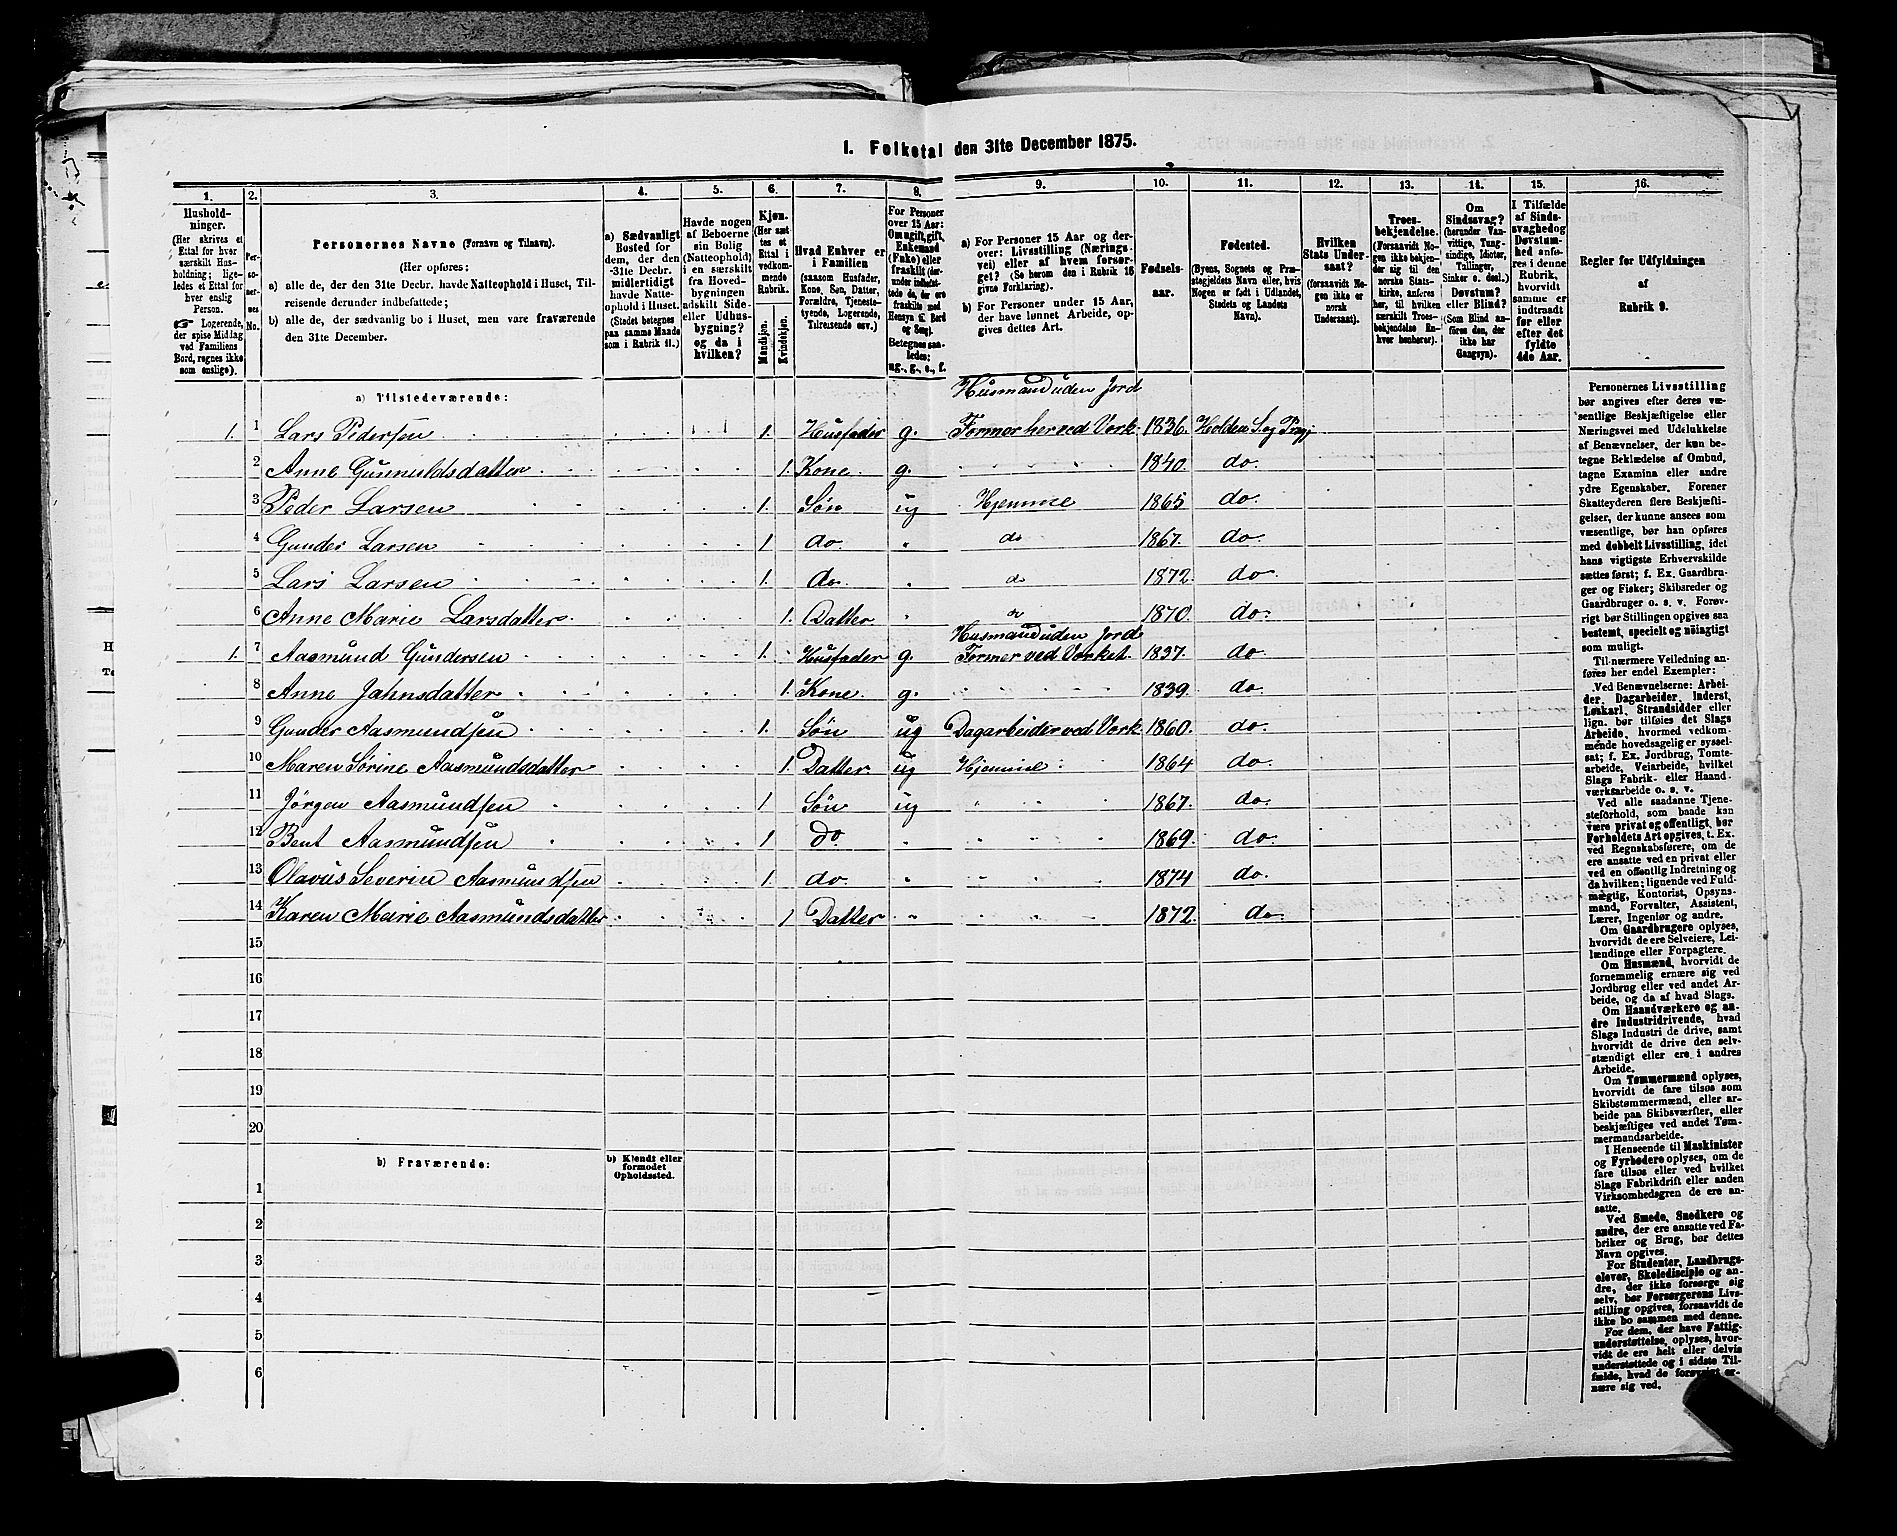 I. Folketal den 31te December 1875.
1. 2. 3. 4. 5. 6. 7. 8. 9. 10. 11. 12. 13. 14. 15. 16.
Hushold-
ninger.
(Her skrives et
Ettal for hver
særskilt Hus-
holdning; lige-
ledes et Ettal for
hver enslig
Person.
☞ Logerende,
der spise Middag
ved Familiens
Bord, regnes ikke
som enslige).
Per-
so-
ner-
nes
No.
Personernes Navne (Fornavn og Tilnavn).
(Her opføres:
a) alle de, der den 31te Decbr. havde Natteophold i Huset, Til-
reisende derunder indbefattede;
b) alle de, der sædvanlig bo i Huset, men vare fraværende
den 31te December.
a) Sædvanligt
Bosted for
dem, der den
31te Decbr.
midlertidigt
havde Natte-
ophold i Huset.
(Stedet betegnes
paa samme Maade
som i Rubrik 11.)
Havde nogen
af Beboerne
sin Bolig
(Natteophold)
i en særskilt
fra Hoved-
bygningen
adskilt Side-
eller Udhus-
bygning?
og da i
hvilken?
Kjøn.
(Her sæt-
tes et
Ettal i
vedkom-
mende
Rubrik.
Mandkjøn.
Kvindekjøn.
Hvad Enhver er
i Familien
(saasom Husfader,
Kone, Søn, Datter,
Forældre, Tjeneste-
tyende, Logerende,
Tilreisende osv.)
For Personer
over 15 Aar:
Om ugift, gift,
Enkemand
(Enke) eller
fraskilt (der-
under indbefat-
tede de, der ere
fraskilte med
Hensyn til Bord
og Seng).
Betegnes saa-
ledes:
ug., g., e., f.
a) For Personer 15 Aar og der-
over: Livsstilling (Nærings-
vei) eller af hvem forsør-
get? (Se herom den i Rubrik 16
givne Forklaring).
b) For Personer under 15 Aar,
der have lønnet Arbeide, op-
gives dettes Art.
Fødsels-
aar.
Fødested.
(Byens, Sognets og Præ-
stegjeldets Navn eller, hvis
Nogen er født i Udlandet,
Stedets og Landets
Navn).
Hvilken
Stats Under-
saat?
(forsaavidt No-
gen ikke er
norsk
Undersaat).
Troes-
bekjendelse.
(Forsaavidt No-
gen ikke bekjen-
der sig til den
norske Stats-
kirke, anføres
her, til hvilken
særskilt Troes-
bekjendelse En-
hver henhører).
Om
Sindssvag?
(herunder Van-
vittige, Tung-
sindige, Idioter,
Tullinger,
Sinker o. desl.)
Døvstum?
eller Blind?
(Som Blind an-
føres den, der
ikke har
Gangsyn).
I Tilfælde
af Sinds-
svaghed og
Døvstum-
hed anfø-
res i denne
Rubrik,
hvorvidt
samme er
indtraadt
før eller
efter det
fyldte
4de Aar.
Regler for Udfyldningen
af
Rubrik 9.
a) Tilstedeværende:
Husmand uden Jord
1. 1 Lars Pedersen 1. Husfader g. Former her ved Verk 1836. Holden Sog
2 Anne Gunnuldsdatter 1. Kone g. 1840. do.
3 Peder Larsen 1. Søn ug Hjemme 1865 do.
4 Gunder Larsen 1. do. do 1867. do.
5 Lars Larsen 1. do. do 1872. do
6 Anne Marie Larsdatter. 1. Datter do 1870. do.
Husmand uden Jord
1. 7 Aasmund Gundersen 1. Husfader g. Former ved Verket 1837. do
8 Anne Jahnsdatter 1. Kone. g. 1839. do.
9 Gunder Aasmundsen 1. Søn ug Dagarbeider ved Verk 1860. do.
10 Maren Sørine Aasmundsdatter 1. Datter. ug Hjemme 1864 do.
11 Jørgen Aasmundsen 1 Søn ug 1867. do.
12 Bent Aasmundsen 1 Do. 1869. do.
13 Olavus Severin Aasmundsen 1. do. 1874 do.
14 Karen Marie Aasmundsdatter 1 Datter 1872. do.
15
16
17
18
19
20
b) Fraværende:
b) Kjendt eller
formodet
Opholdssted.
1
2
3
4
5
6
Personernes Livsstilling
bør angives efter deres væ-
sentlige Beskjæftigelse eller
Næringsvei med Udelukkelse
af Benævnelser, der kun be-
tegne Beklædelse af Ombud,
tagne Examina eller andre
ydre Egenskaber. Forener
Skatteyderen flere Beskjæfti-
gelser, der kunne ansees som
væsentlige, bør han opføres
med dobbelt Livsstilling, idet
hans vigtigste Erhvervskilde
sættes først; f. Ex. Gaardbru-
ger og Fisker; Skibsreder og
Gaardbruger o. s. v. Forøv-
rigt bør Stillingen opgives saa
bestemt, specielt og nøiagtigt
som muligt.
Til nærmere Veiledning an-
føres her endel Exempler:
Ved Benævnelserne: Arbei-
der, Dagarbeider, Inderst,
Løskarl, Strandsidder eller
lign. bør tilføies det Slags
Arbeide, hvormed vedkom-
mende hovedsagelig er syssel-
sat; f. Ex. Jordbrug, Tomte-
arbeide, Veiarbeide, hvilket
Slags Fabrik- eller Haand-
værksarbeide o. s. v.
Ved alle saadanne Tjene-
steforhold, som baade kan
være privat og offentligt, bør
Forholdets Art opgives, t. Ex.
ved Regnskabsførere, om de
ere ansatte ved en privat eller
ved en offentlig Indretning og
da hvilken; lignende ved Fuld-
mægtig, Kontorist, Opsyns-
mand, Forvalter, Assistent,
Lærer, Ingeniør og andre.
Om Gaardbrugere oplyses,
hvorvidt de ere Selveiere, Lei-
lændinge eller Forpagtere.
Om Husmænd, hvorvidt de
fornemmelig ernære sig ved
Jordbrug eller ved andet Ar-
beide, og da af hvad Slags.
Om Haandværkere og an-
dre Industridrivende, hvad
Slags Industri de drive, samt
hvorvidt de drive den selv-
stændigt eller ere i andres
Arbeide.
Om Tømmermænd oplyses,
hvorvidt de fare tilsøs som
Skibstømmermænd, eller ar-
beide paa Skibsværfter, eller
beskjæftiges ved andet Tøm-
mermandsarbeide.
I Henseende til Maskinister
og Fyrbødere oplyses, om de
fare tilsøs eller ved hvilket
Slags Fabrikdrift eller anden
Virksomhedsgren de ere an-
satte.
Ved Smede, Snedkere og
andre, der ere ansatte ved Fa-
briker og Brug, bør dettes
Navn opgives.
For Studenter, Landbrugs-
elever, Skoledisciple og an-
dre, der ikke forsørge sig
selv, bør Forsørgerens Livs-
stilling opgives, forsaavidt de
ikke bo sammen med denne.
For dem, der have Fattig-
understøttelse, oplyses, hvor-
vidt de ere helt eller delvis
understøttede og i sidste Til-
fælde, hvad de forøvrigt er-
nære sig ved.